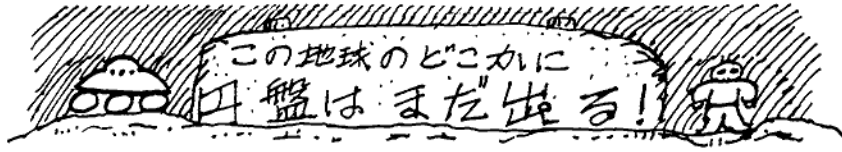 この地球のどこかに
円盤はまだ出る!